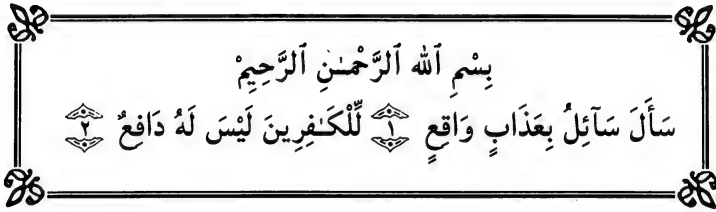 بِسْمِ ٱللهِ ٱلرَّحْمَـٰنِ ٱلرَّحِيمِ
سَأَلَ سَآئِلُ بِعَذَابٍ وَاقِعٍ ١ لِّلْكَـٰفِرِينَ لَيْسَ لَهُ دَافِعٌ ٢